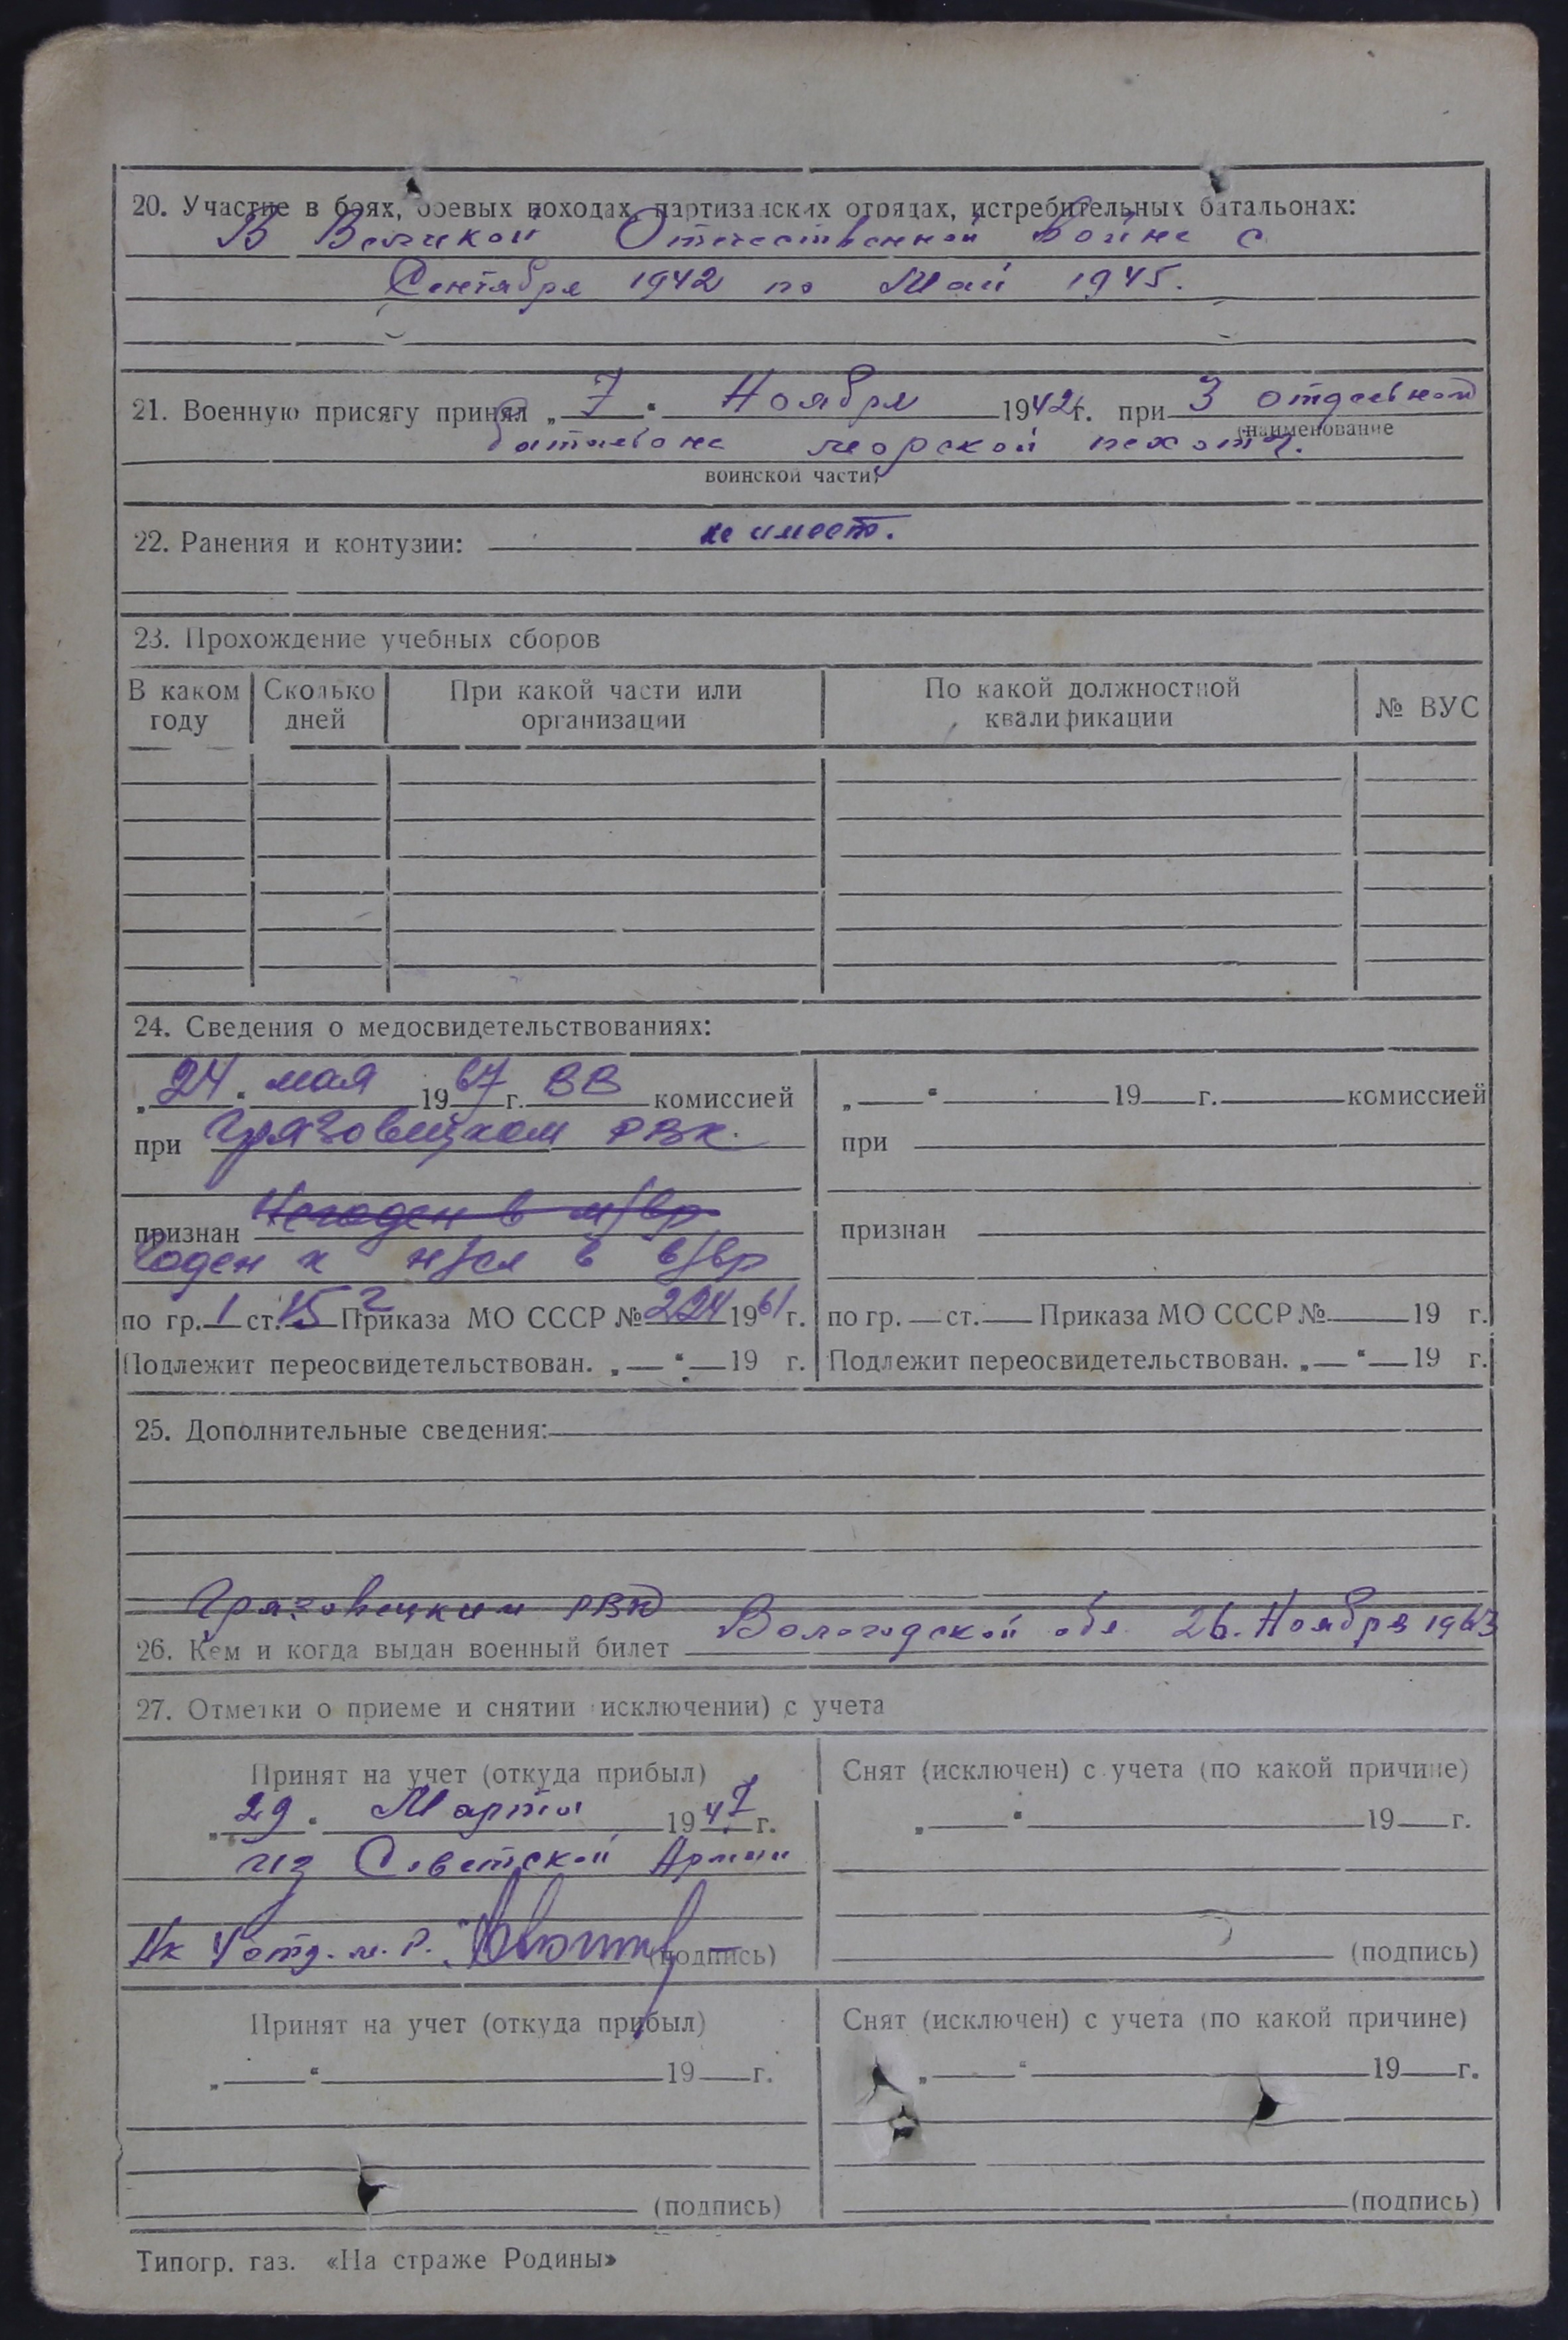 20. Участие в боях, боевых походах, партизанских отрядах, истребительных батальонах:
В Великой Отечественной войне с
Сентября 1942 по Май 1945.
21. Военную присягу принял „ 7 “ Ноября 1942 г. при 3 отдельном
(наименование
батальоне морской пехоты.
воинской части)
22. Ранения и контузии: не имеет.
23. Прохождение учебных сборов
В каком году Сколько дней При какой части или организации По какой должностной квалификации № ВУС
24. Сведения о медосвидетельствованиях:
„ 24 “ мая 1967 г. ВВ комиссией
при Грязовецком РВК.
признан Негоден в м/вр
Годен к н/сл в в/вр
по гр. 1 ст. 15 г Приказа МО СССР № 224 1961 г.
Подлежит переосвидетельствован. „ “ 19 г.
„ “ 19 г. комиссией
при
признан
по гр. ст. Приказа МО СССР № 19 г.
Подлежит переосвидетельствован. „ “ 19 г.
25. Дополнительные сведения:
Грязовецким РВК Вологодской обл. 26. Ноября 1963
26. Кем и когда выдан военный билет
27. Отметки о приеме и снятии исключении) с учета
Принят на учет (откуда прибыл)
„ 29 “ Марта 1947 г.
из Советской Армии
Нк 4 отд.
(подпись)
Снят (исключен) с учета (по какой причине)
„ “ 19 г.
(подпись)
Принят на учет (откуда прибыл)
„ “ 19 г.
(подпись)
Снят (исключен) с учета (по какой причине)
„ “ 19 г.
(подпись)
Типогр. газ. «На страже Родины»